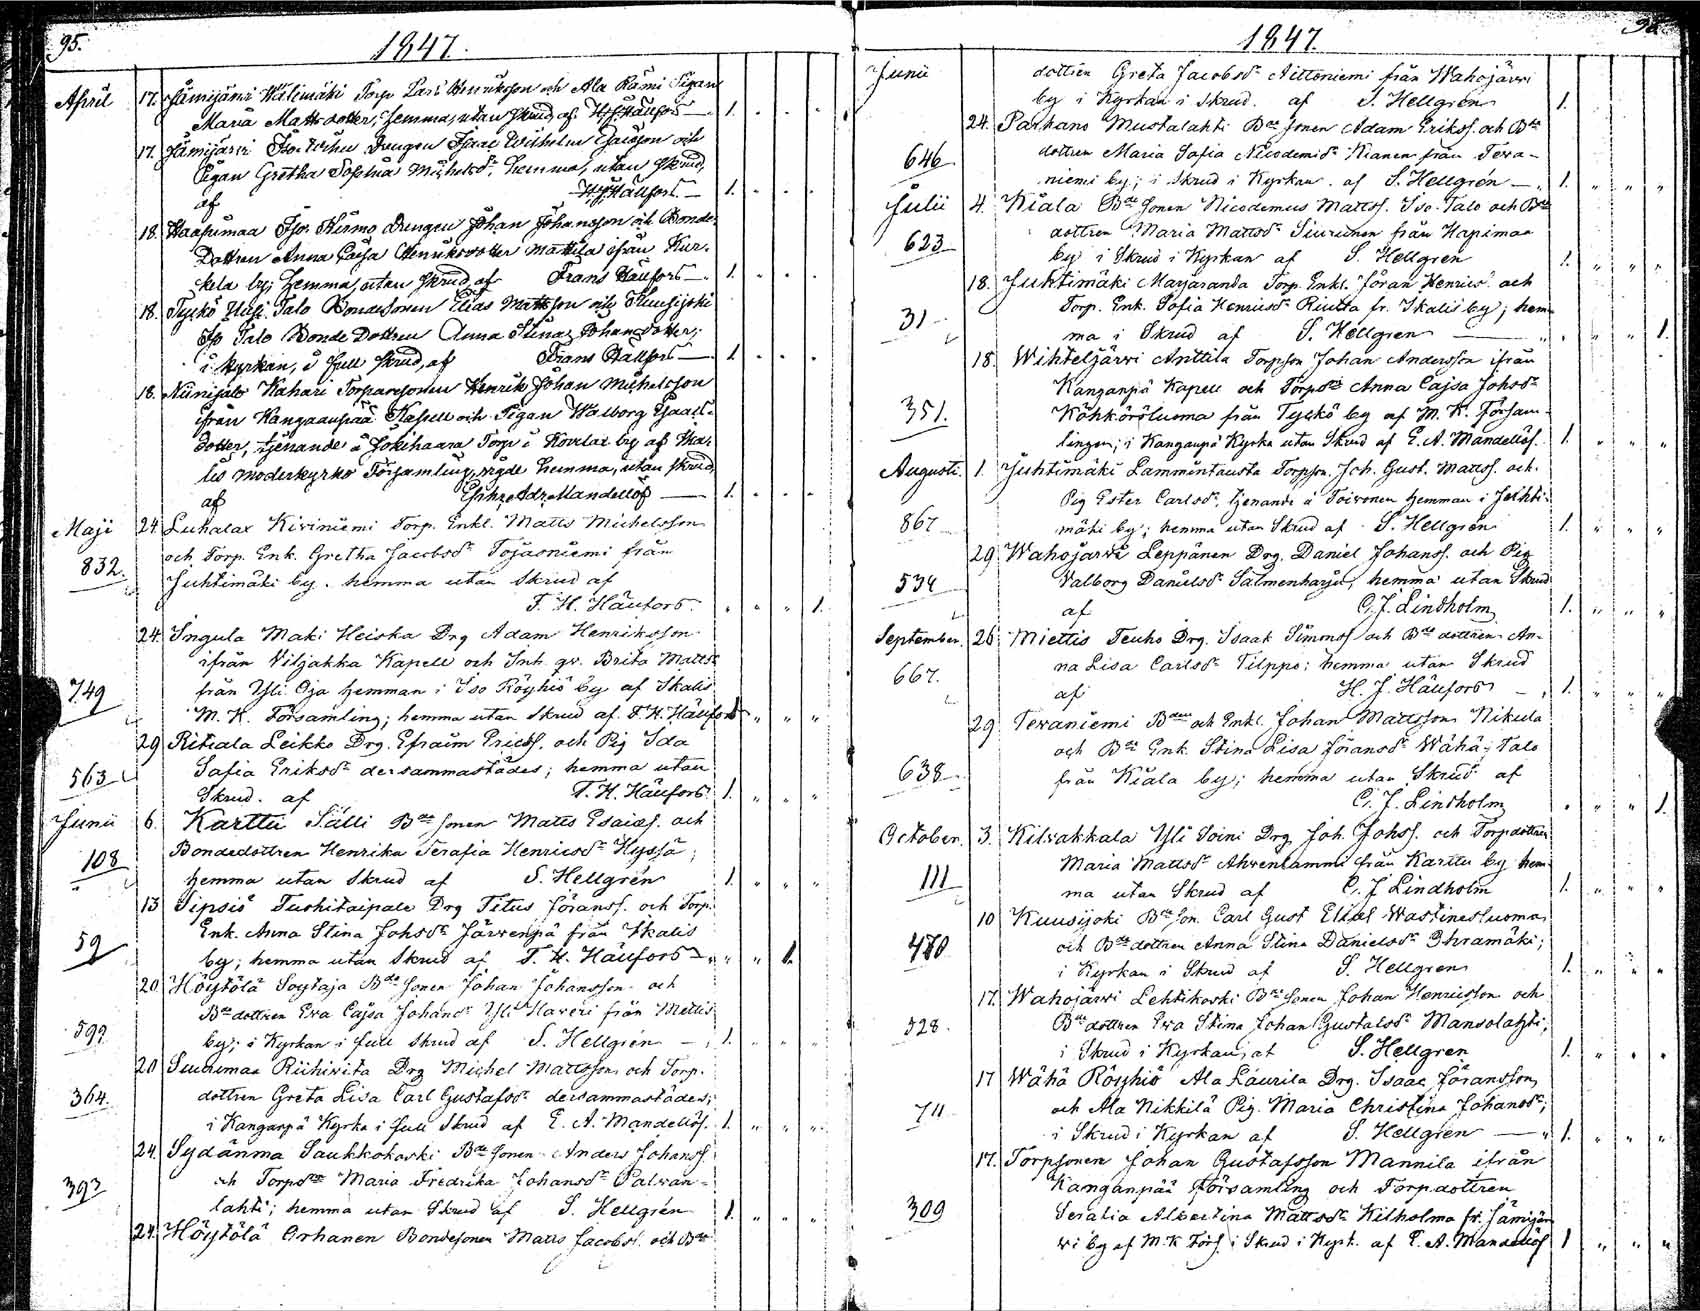 95.
1847.
April 17. Jämijärvi Wälimäki Torp. Lars Henriksson och Ala Rämi Pigan
Maria Mattsdotter, hemma, utan skrud, af H.H. Häufors — 1.
17. Jämijärvi Drengen Isaac Wilhelm Isacsson och
Pigan Gretha Sophia Michelsdr hemma, utan skrud,
af H.H. Häufors. — 1.
18. Haapimaa Iso Kirmo drengen Johan Johansson och Bonde
Dottren Anna Cajsa Henriksdotter Mattila ifrån Kur-
kela by; hemma, utan skrud, af Frans Häufors — 1.
18. Tyckö Talo Bondesonen Elias Mattsson och Kuusijoki
Iso Talo Bonde Dottren Anna Stina Johansdotter;
i kyrkan, i full skrud, af Frans Häufors — 1.
18. Niinisalo Kahari Torparesonen Henrik Johan Michelsson
ifrån Kangaanpää Kapell och Pigan Walborg Isaacs-
dotter, tjenande å Jokihaara Torp i Kovelax by af Ika-
lis moderkyrko Församling, vigde hemma, utan skrud,
af Adr. Mandellöf — 1.
Maji 24. Luhalax Kiviniemi Torp. Enkl. Matts Michelsson
832. och Torp. Enk. Gretha Jacobsdr Tojasniemi från
Juhtimäki by. hemma utan Skrud af
F. H. Häufors. 1.
24. Ingula Maki Heiska Drg Adam Henriksson
ifrån Viljakka Kapell och Inh. qv. Brita Mattsdr
749 från Yli Oja hemman i Iso Röyhiö by af Ikalis
M. K. Församling; hemma utan Skrud af F. H. Häufors 1
29 Ritiala Leikko Drg. Efraim Ericss. och Pig Ida
563 Safia Eriksdr dersammastädes; hemma utan
Skrud. af F. H. Häufors. 1.
Junii 6. Karttu Sälli Bde sonen Matts Esaiass. och
108 Bondedottren Henrika Serafia Henricsdr Hyssä;
hemma utan Skrud af S. Hellgrén 1.
13 Sipsiö Tuohitaipale Drg Titus Göranss. och Torp.
59 Enk. Anna Stina Johsdr Järvenpä från Ikalis
by; hemma utan Skrud af F. H. Häufors — 1.
20. Höytölä Soytaja Bde sonen Johan Johansson och
Bde dottren Eva Cajsa Johansdr Yli Haveri från Mettis
599 by; i Kyrkan i full skrud af S. Hellgrén — 1.
20 Suurimaa Riihivita Drg Michel Mattsson och Torp.
364. dottren Greta Lisa Carl Gustafsdr dersammastädes;
i Kanganpä Kyrka i full Skrud af E. A. Mandellöf. 1.
24. Sydänma Saukkokoski Bde sonen Anders Johanss.
och Torpdottr Maria Fredrika Johansdr Palvan-
393 lahti; hemma utan Skrud af S. Hellgrén 1.
24. Höytölä Orhanen Bondesonen Matts Jacobss. och Bde
1847.
Junii dottren Greta Jacobsdr Aittoniemi från Wahojärvi
by i Kyrkan i skrud. af S. Hellgrén 1.
24. Parkano Mustalahti Bde sonen Adam Erikss. och Bde
646 dottren Maria Safia Nicodemidr Kianen från Teva-
niemi by; i skrud i Kyrkan. af S. Hellgrén — 1.
Julii 4. Kiala Bde sonen Nicodemus Mattss. Iso-Talo och Bde
623 dottren Maria Mattsdr Siurunen från Hapimaa
by i Skrud i Kyrkan af S. Hellgrén 1.
18. Juhtimäki Marjaranda Torp. Enkl. Göran Henrics. och
31 Torp. Enk. Sofia Henricsdr Riutta fr. Ikalis by; hem-
ma i Skrud af S. Hellgren — 1.
18. Wihteljärvi Anttila Torpson Johan Andersson ifrån
Kanganpä Kapell och Torpdr Anna Cajsa Johsdr
351. Köhköröluoma från Tyckö by af M. K. Försam-
lingen; i Kanganpä Kyrka utan Skrud af E. A. Mandellöf. 1.
Augusti. 1. Juhtimäki Lammintausta Torpson. Joh. Gust. Mattss. och
Pig Ester Carlsdr. tjenande å Toivonen hemman i Juhti-
867 mäki by; hemma utan Skrud af S. Hellgrén 1.
29 Wahojärvi Leppänen Drg. Daniel Johanss. och Pig
534 Valborg Danielsdr Salmenharju, hemma utan Skrud
af C. J. Lindholm 1.
September. 26 Miettis Teuho Drg. Isaak Simonss. och Bde dottren An-
667. na Lisa Carlsdr Tilppo; hemma utan Skrud
af H. J. Häufors — 1.
29 Tevaniemi Bden och Enkl. Johan Mattsson Nikula
och Bde Enk. Stina Lisa Göransdr Wähä-Talo
638 från Kiala by; hemma utan Skrud af
C. J. Lindholm 1.
October. 3. Kilvakkala Yli Soini Drg Joh. Johss. och Torpdottren
Maria Mattsdr Ahvenlammi från Karttu by hem-
111 ma utan Skrud af C. J. Lindholm 1.
10 Kuusijoki Bde son. Carl Gust Elias Wastinesluoma
470 och Bde dottren Anna Stina Danielsdr Ihramäki;
i Kyrkan i Skrud af S. Hellgren 1.
17. Wahojärvi Lehtikoski Bde sonen Johan Henricsson och
528 Bde dottren Eva Stina Johan Gustafsdr Mansolahti;
i Skrud i Kyrkan, af S. Hellgren 1.
17 Wähä Röyhiö Ala Laurila Drg. Isaac Göransson
711 och Ala Nikkilä Pig. Maria Christina Johansdr;
i Skrud i Kyrkan af S. Hellgren — 1.
17. Torpsonen Johan Gustafsson Mannila ifrån
Kanganpää Församling och Torpdottren
309 Serafia Albertina Mattsdr Kilholma fr. Jämijär-
vi by af M. K. Förs. i Skrud i Kyrk. af E. A. Mandellöf 1